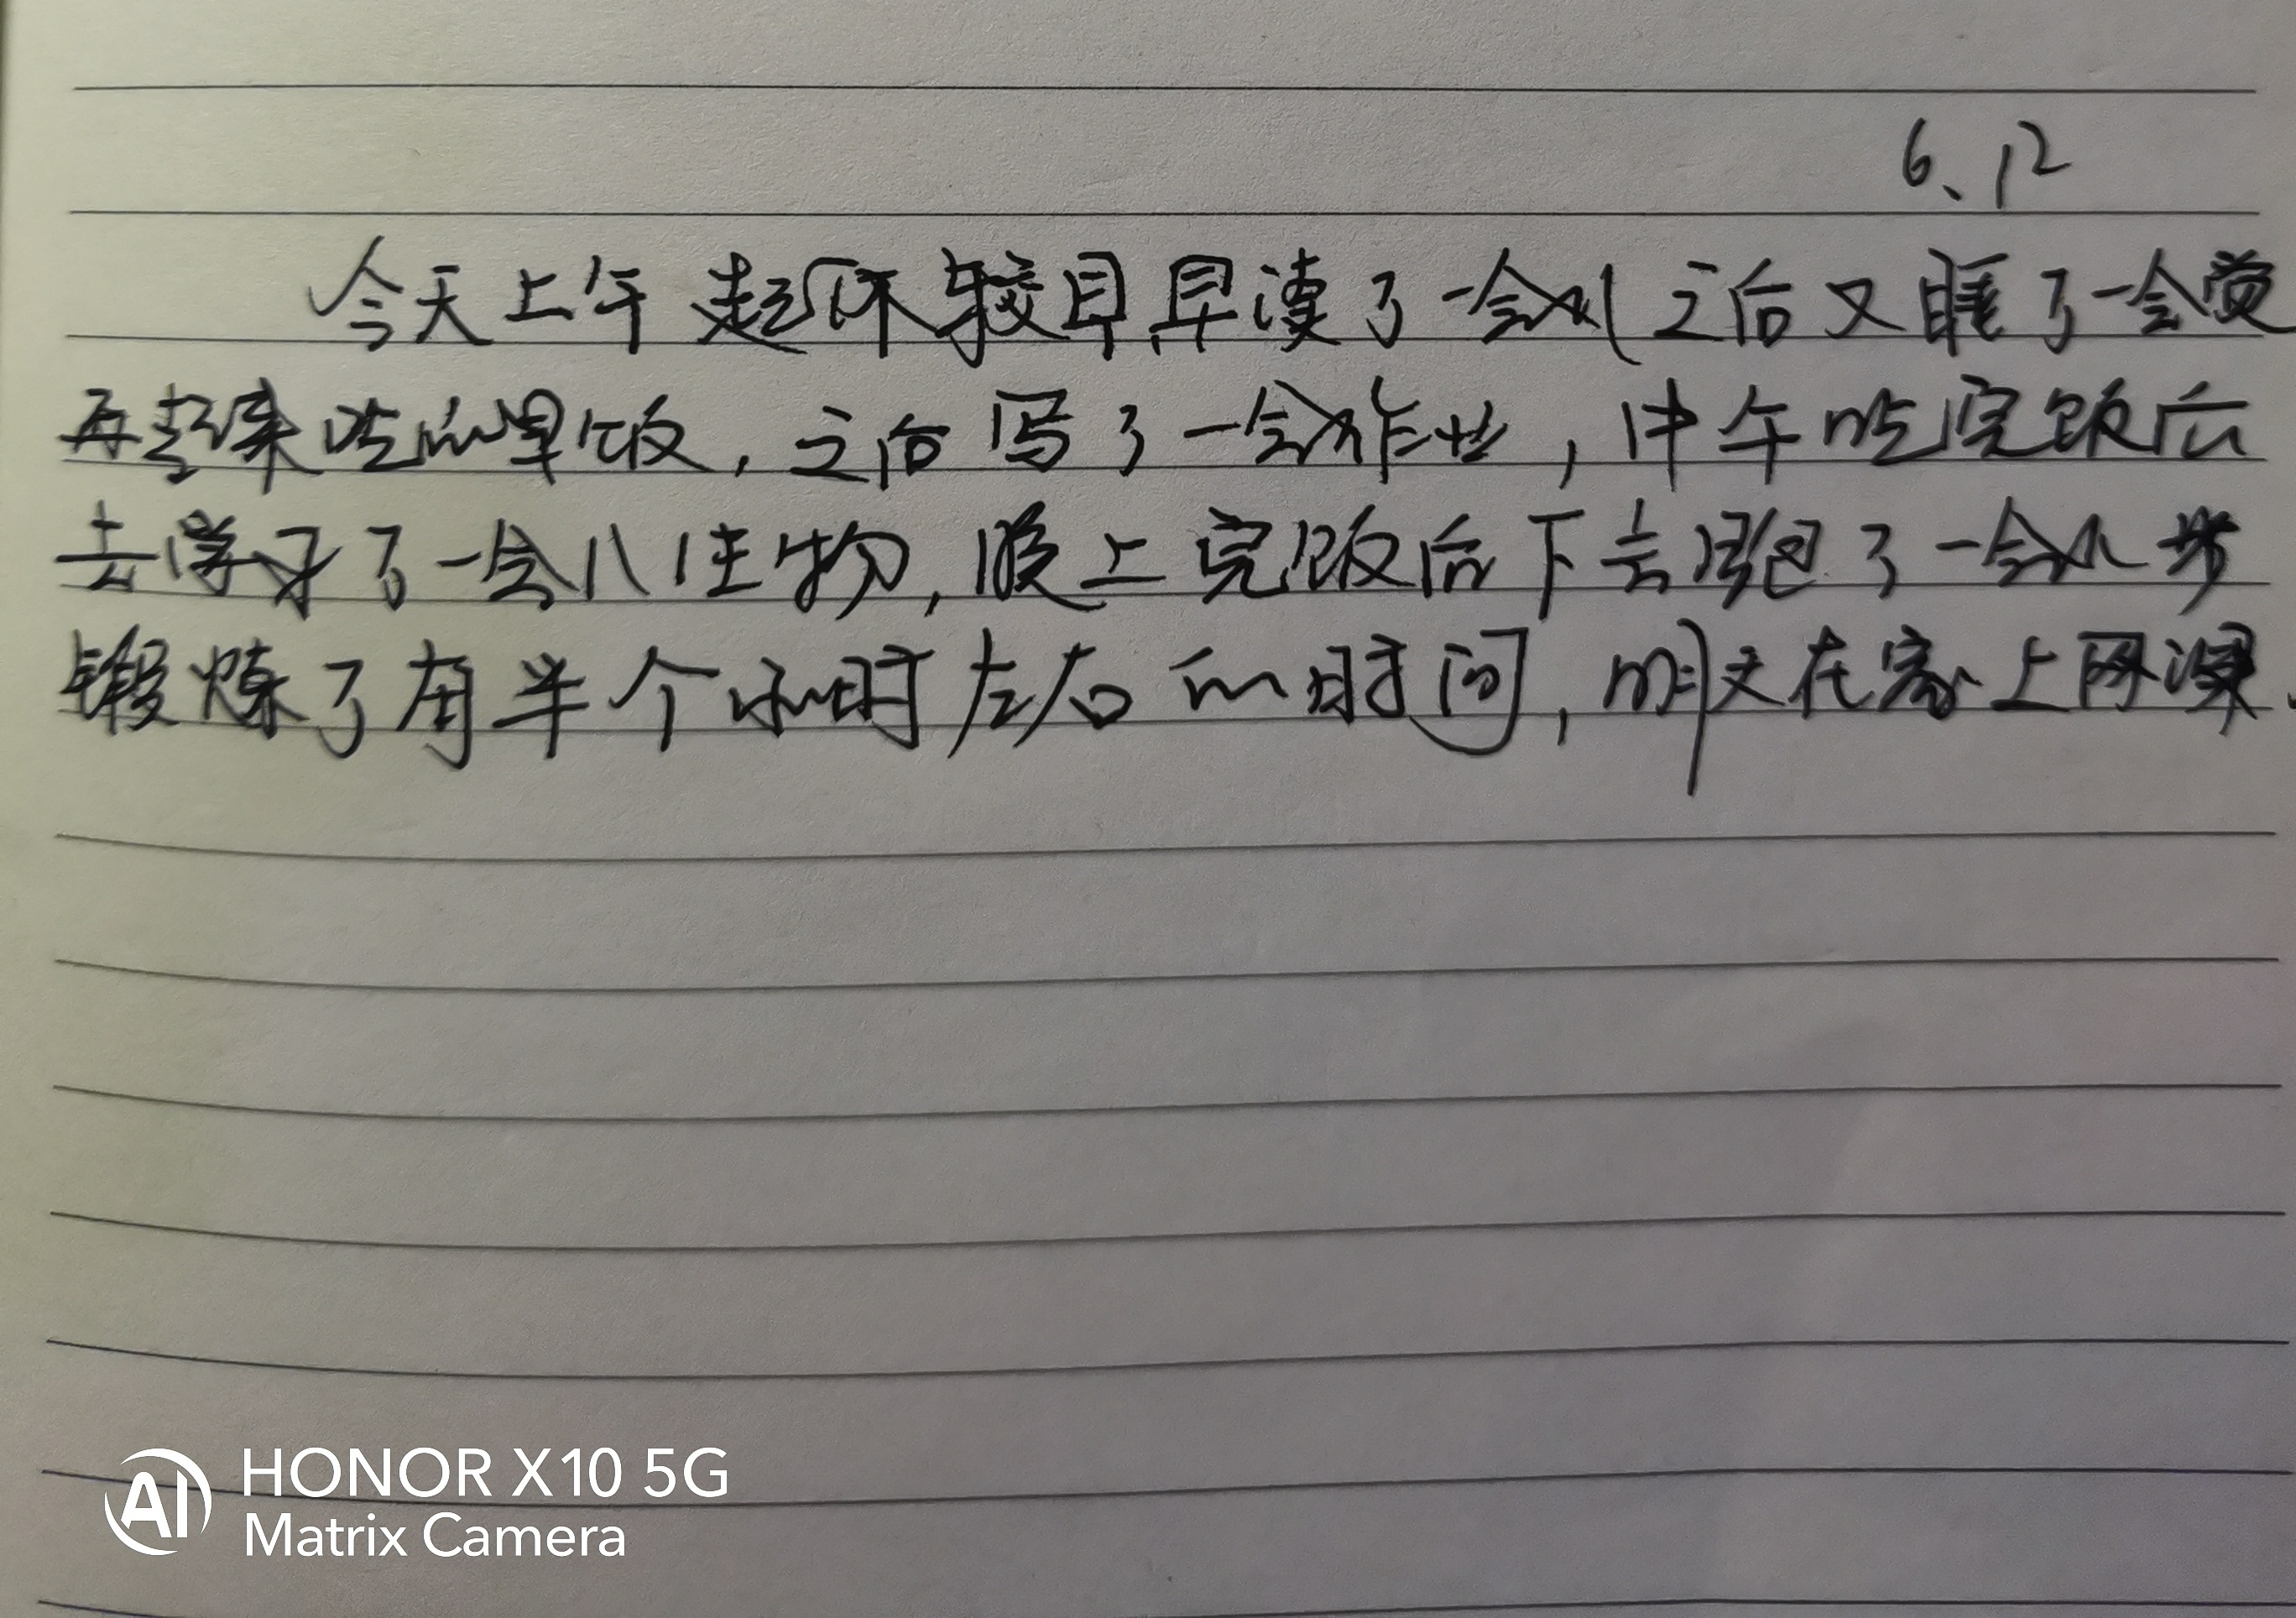 6、12
今天上午起床较早早读了一会儿之后又睡了一会觉
再起来吃的早饭，之后写了一会作业，中午吃完饭后
去学习了一会儿生物，晚上完饭后下去跑了一会儿步
锻炼了有半个小时左右的时间，明天在家上网课.
AI HONOR X10 5G
Matrix Camera